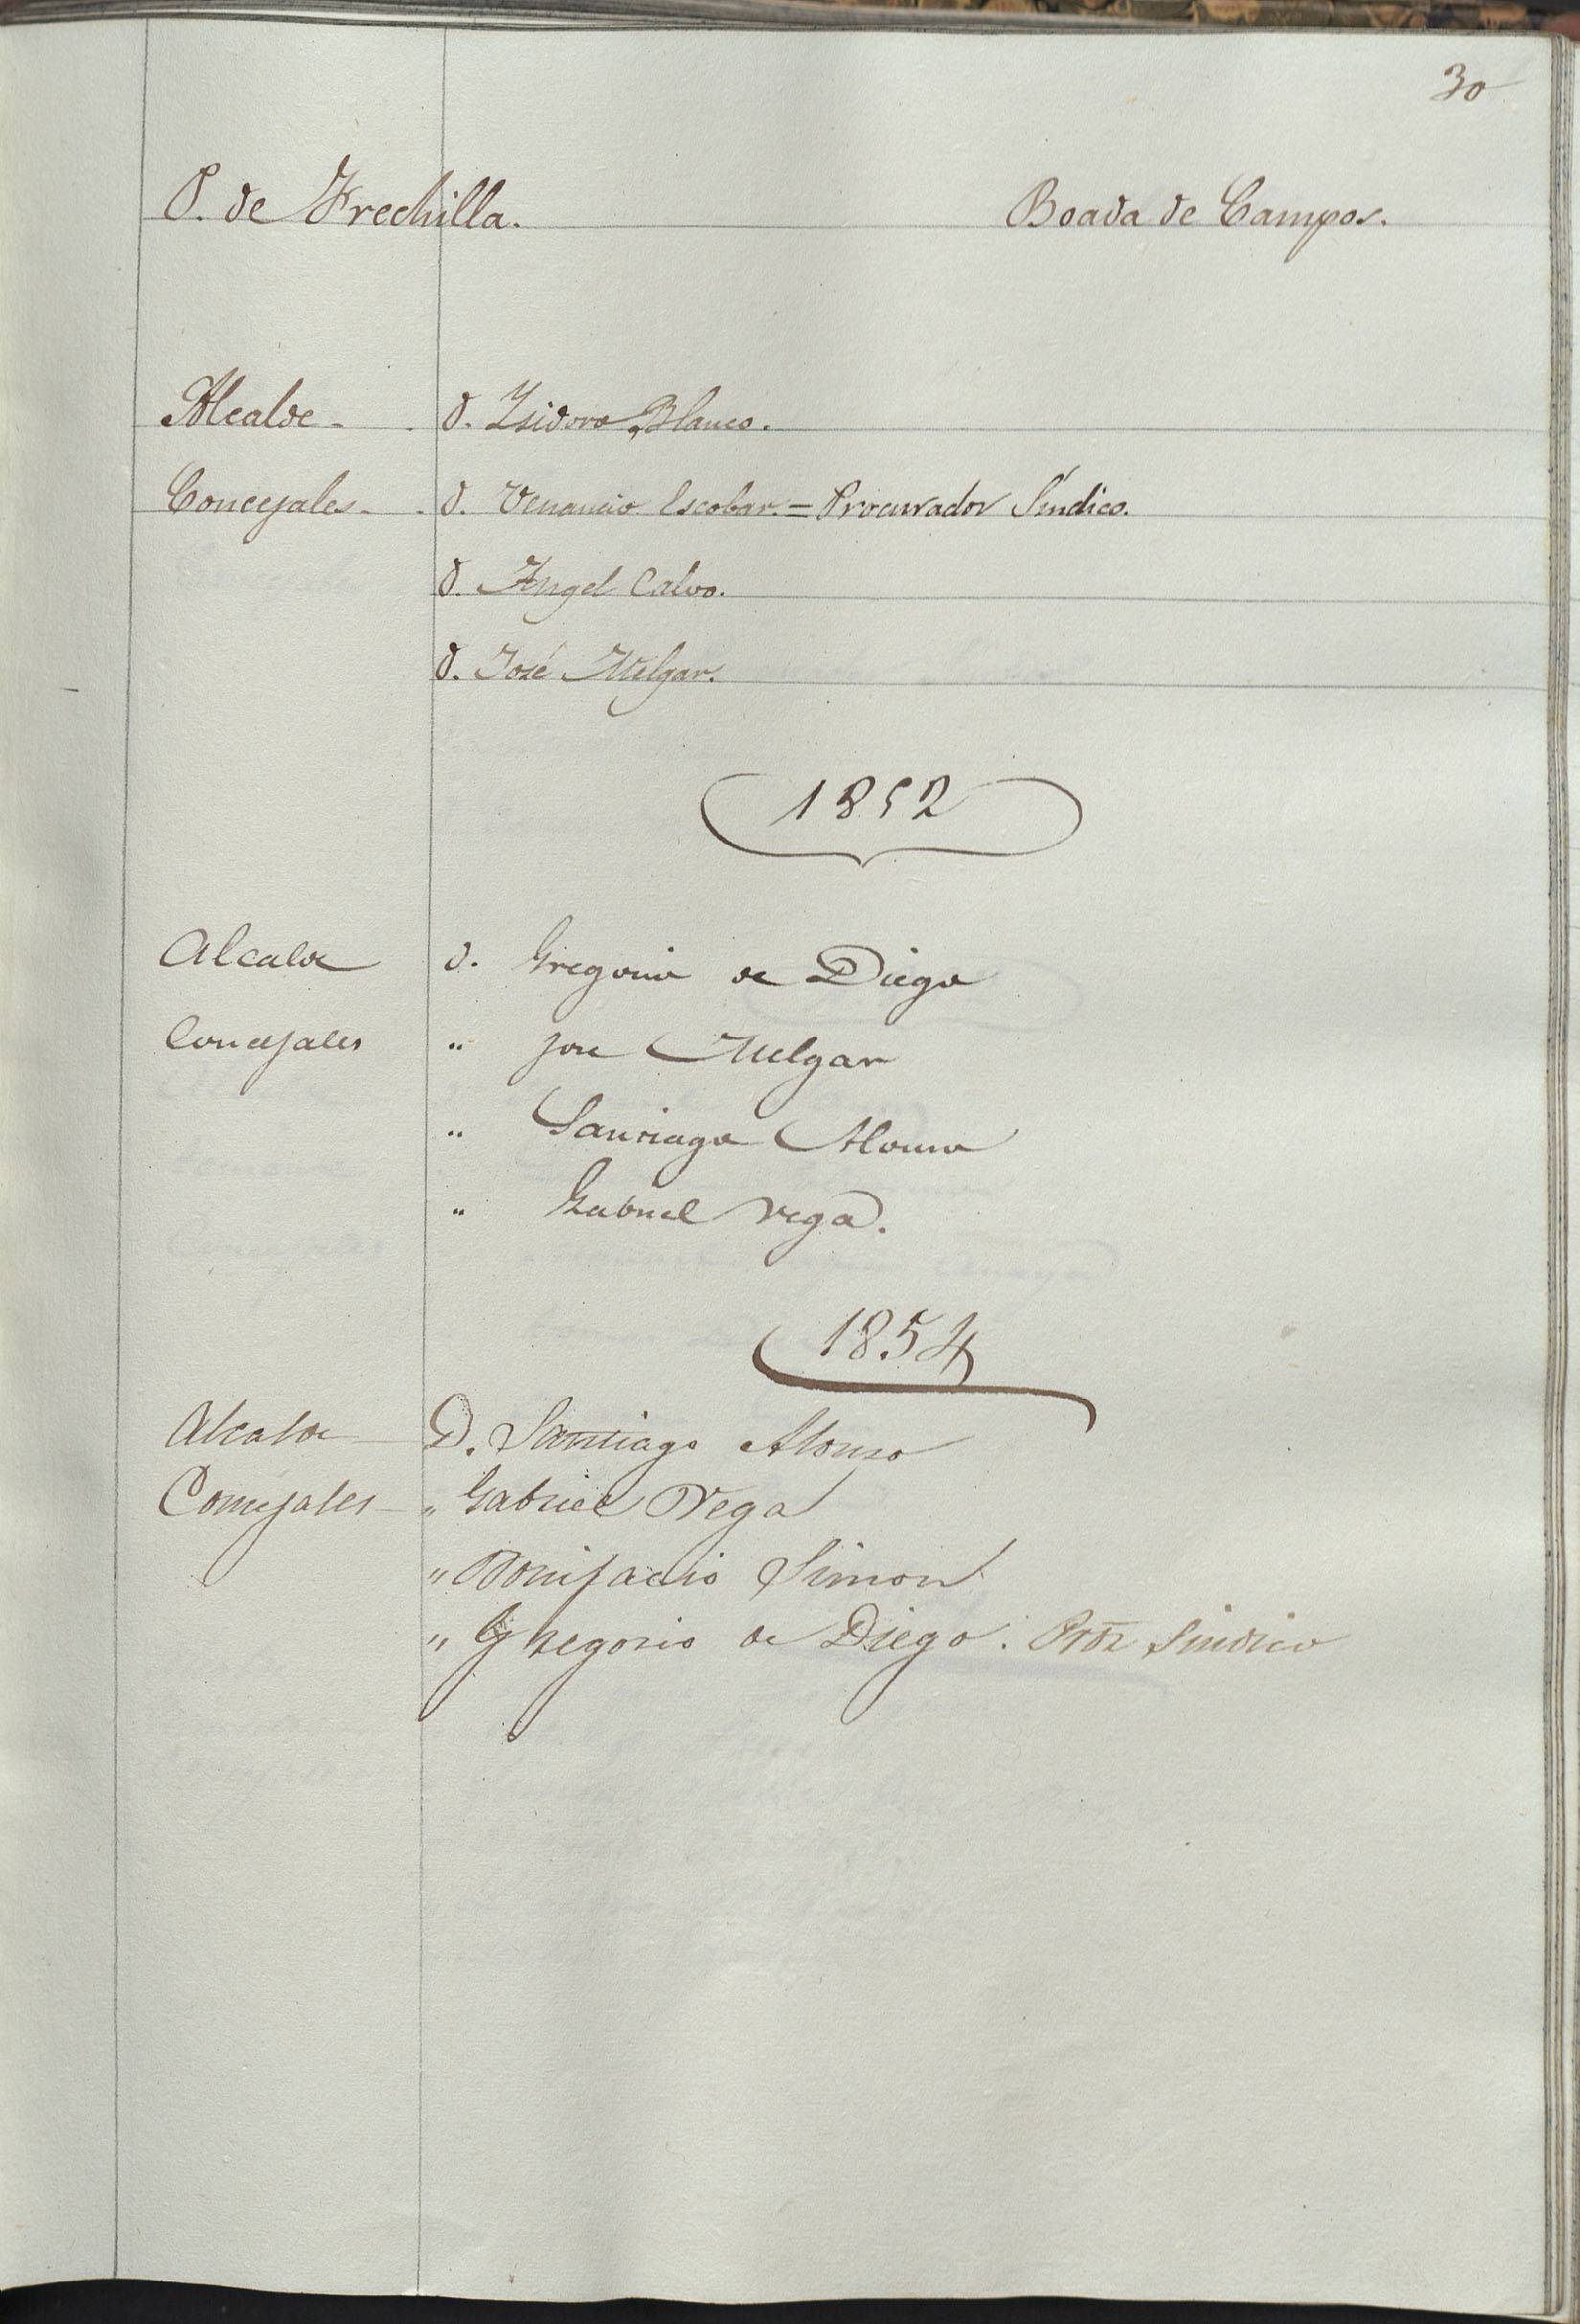 30
P. de Frechilla. Boada de Campos.
Alcalde - . D. Ysidoro Blanco.
Concejales - . D. Venancio Escobar. = Procurador Síndico.
D. Angel Calvo.
D. José Melgar.
1852
Alcalde D. Gregorio de Diego
Concejales " Jose Melgar
" Santiago Alonso
" Gabriel Vega.
1854
Alcalde D. Santiago Alonso
Concejales " Gabriel Vega
" Bonifacio Simon
" Gregorio de Diego. Prdr Sindico